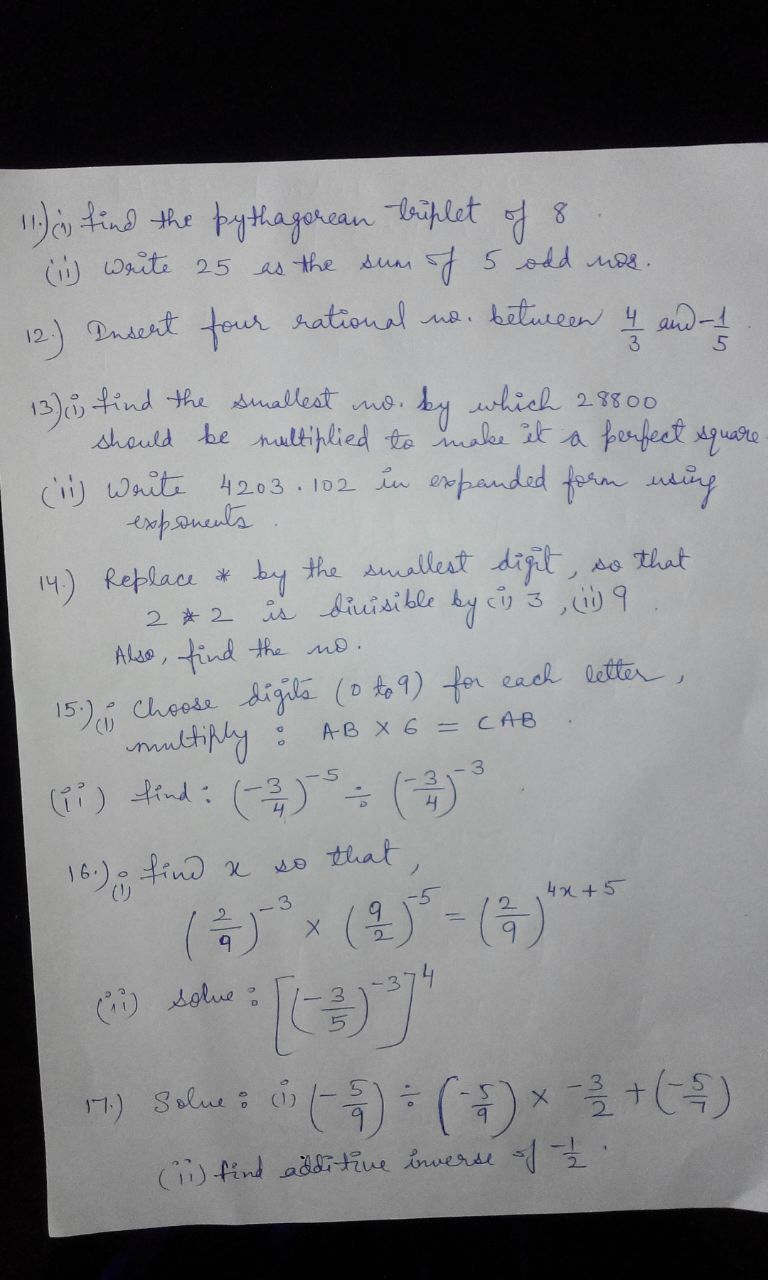 11.) (i) find the pythagorean triplet of 8.
(ii) Write 25 as the sum of 5 odd nos.
12.) Insert four rational no. between 4/3 and -1/5.
13) (i) find the smallest no. by which 28800
should be multiplied to make it a perfect square.
(ii) Write 4203.102 in expanded form using
exponents.
14.) Replace * by the smallest digit, so that
2 * 2 is divisible by (i) 3, (ii) 9.
Also, find the no.
15.) (i) Choose digits (0 to 9) for each letter,
multiply : AB × 6 = CAB.
(ii) find : (-3/4)^-5 ÷ (-3/4)^-3.
16.) (i) find x so that,
(2/9)^-3 × (9/2)^-5 = (2/9)^4x+5
(ii) solve : [(-3/5)^-3]^4
17.) Solve : (i) (-5/9) ÷ (-5/9) × -3/2 + (-5/7)
(ii) find additive inverse of -1/2.